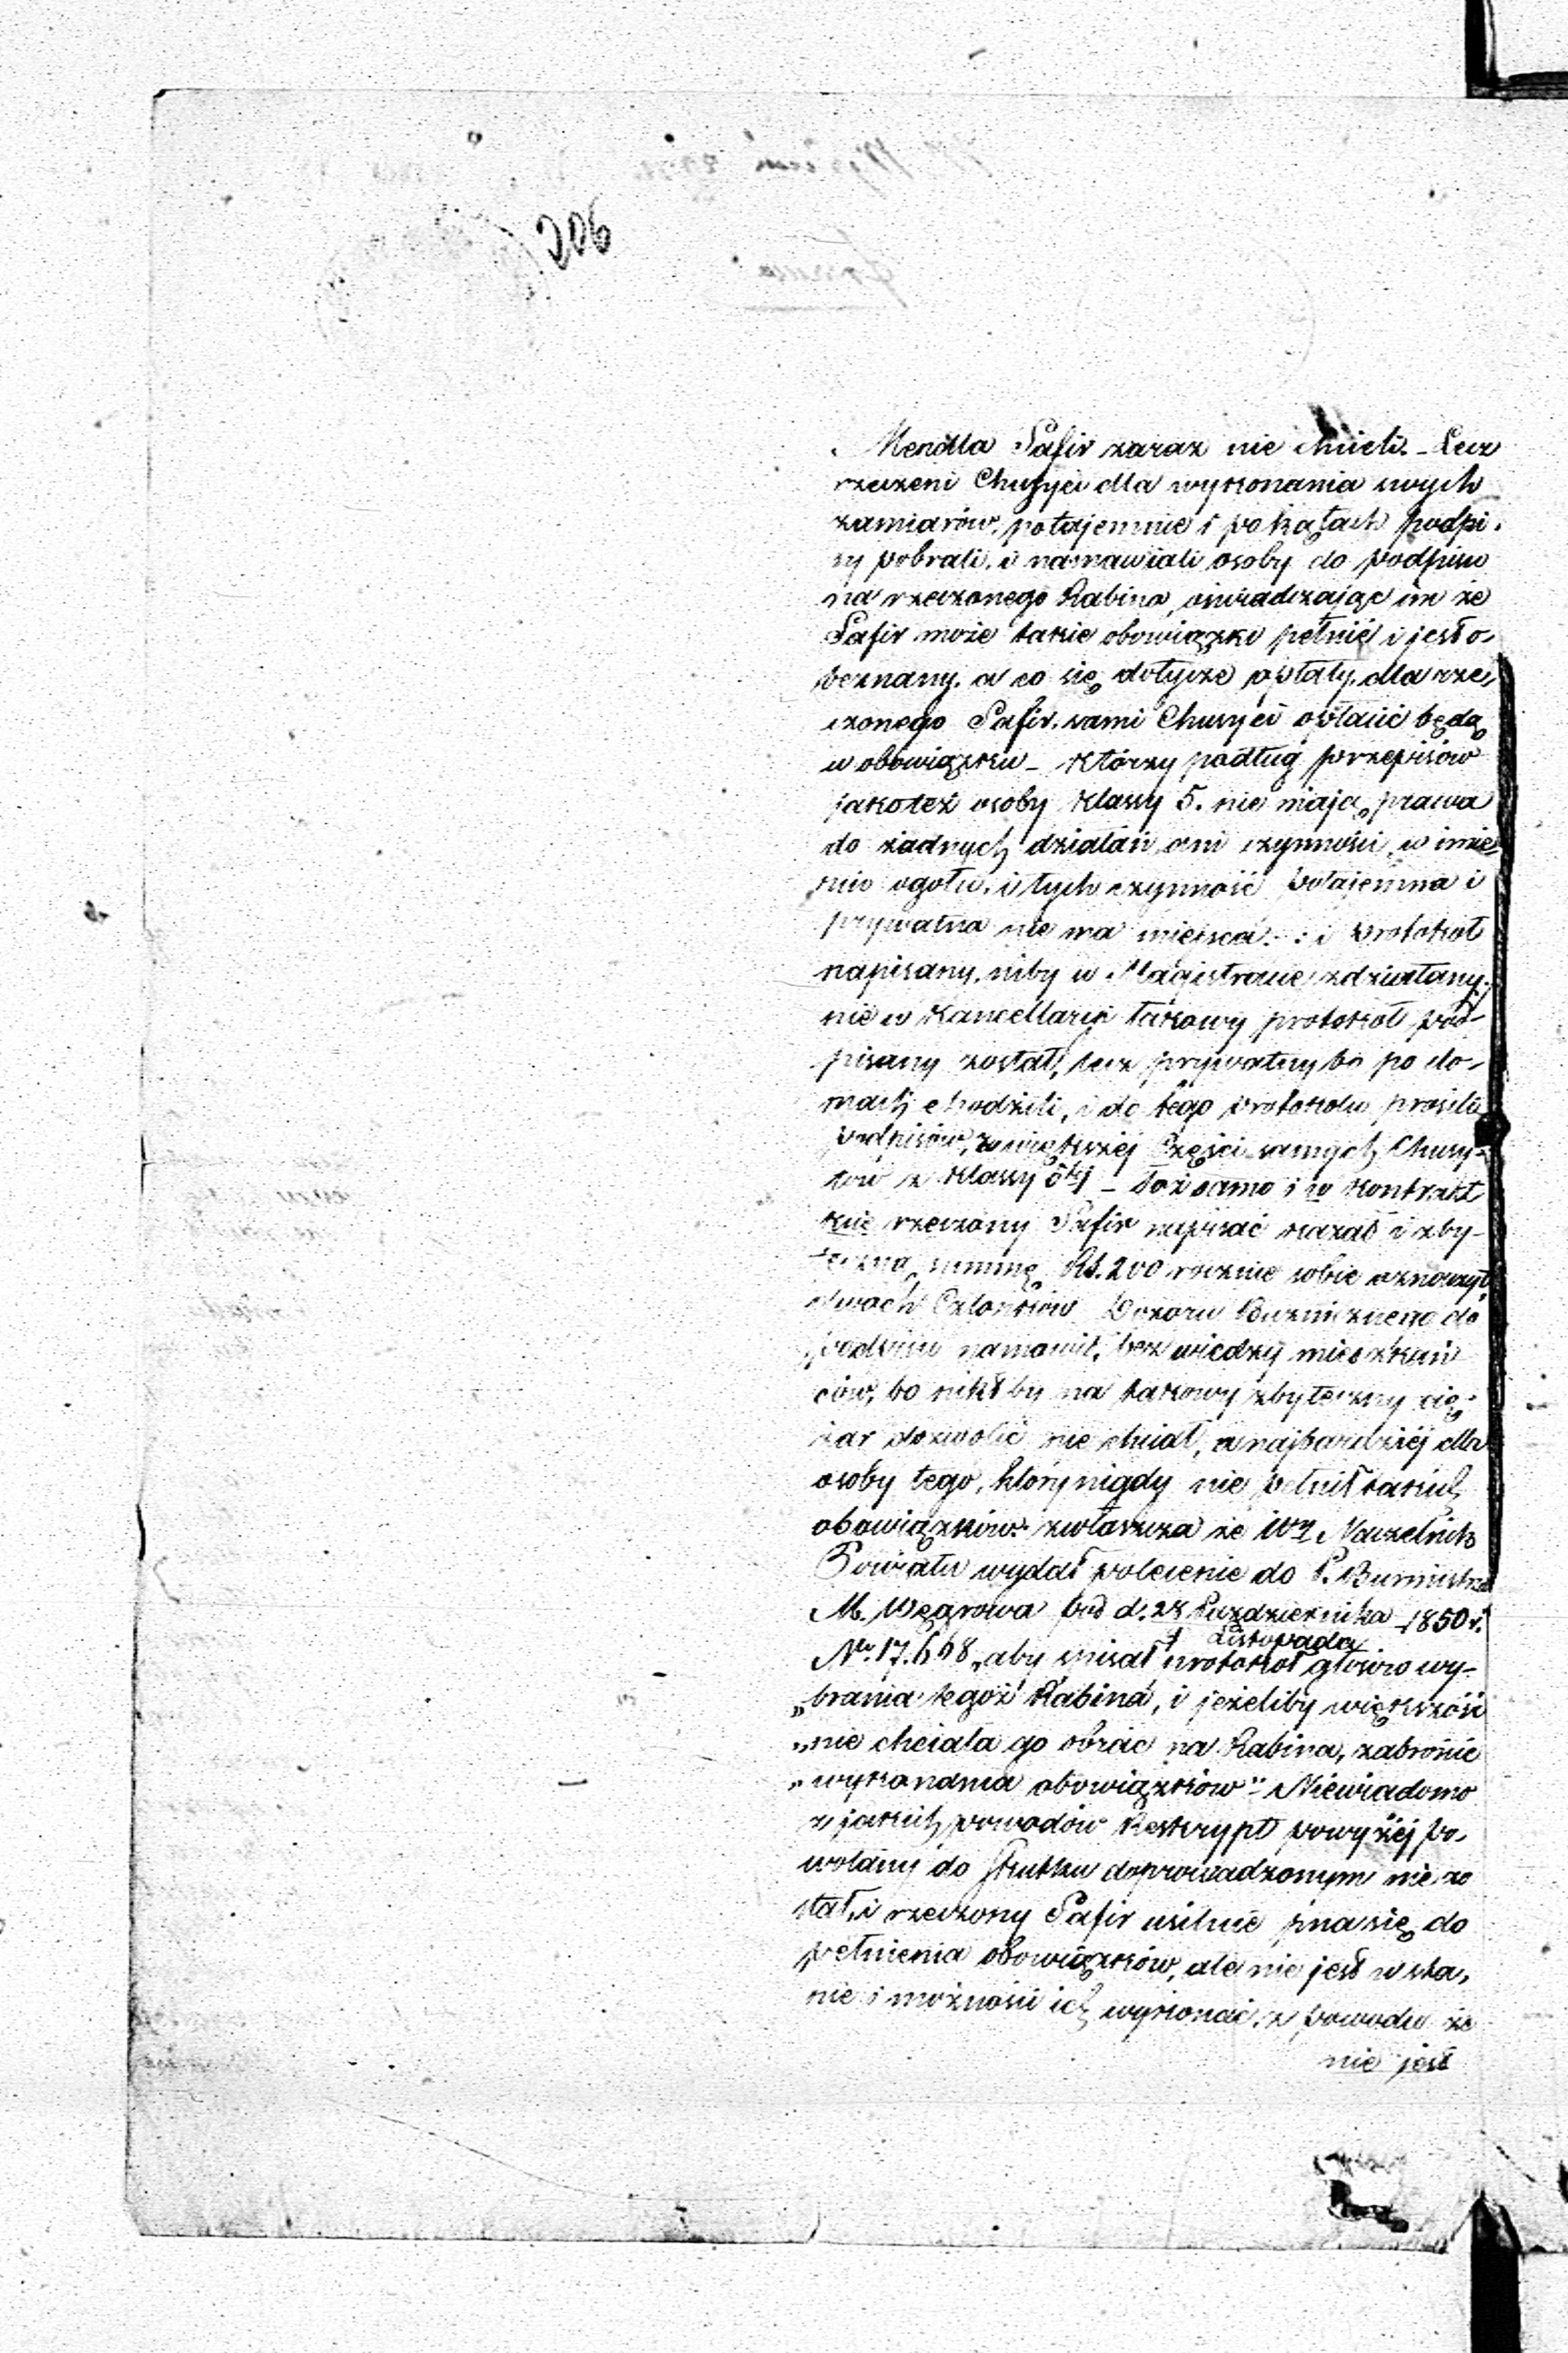 206
Mendla Safir zaraz nie chcieli. – Lecz
rzeczeni Chusyci dla wykonania swych
zamiarów, potajemnie i po kątach podpi-
sy pobrali, i namawiali osoby do podpisu
na rzeczonego Rabina, oświadczając im że
Safir może takie obowiązki pełnić i jest o-
beznany, a co się dotycze opłaty, dla rze-
czonego Safir, sami Chusyci opłacić będą
w obowiązku – którzy podług przepisów
jakoteż osoby klassy 5. nie mają prawa
do żadnych działań ani czynności, w imie-
niu ogółu, i tych czynność potajemna i
prywatna nie ma miejsca. : i protokół
napisany, niby w Magistracie zdziałany,
nie w Kancellarji takowy protokoł pod-
pisany został, lecz prywatny bo po do-
mach chodzili, i do tego protokołu prosili
podpisów, z większej Części samych Chusy-
tów z klassy 5tej – Toż samo i w kontrakt
kuie rzeczony Safir napisać kazał i zby-
teczną summę Rs. 200 rocznie sobie oznaczył
dwóch Członków Dozoru Bużnicznego do
podpisu namówił, bez wiedzy mieszkań
ców, bo nikt by na takowy zbyteczny cię-
żar dozwolić nie chciał, a najbardziéj dla
osoby tego, który nigdy nie pełnił takich
obowiązków. zwłaszcza że Wny Naczelnik
Powiatu wydał polecenie do P. Burmistrza
M. Węgrowa pod d. 28 Października 1850 r.
Listopada
No. 17.668 „aby spisał protokoł głosów wy-
„brania tegoż Rabina, i jeżeliby większość
„nie chciała go obrać na Rabina, zabronić
„wykonania obowiązków" – Niewiadomo
z jakich powodów Reskrypt powyżéj po-
wołany do skutku doprowadzonym nie zo
stał, i rzeczony Safir usilnie pna się do
pełnienia obowiązków, ale nie jest w sta-
nie i możności ich wykonać, z powodu że
nie jest